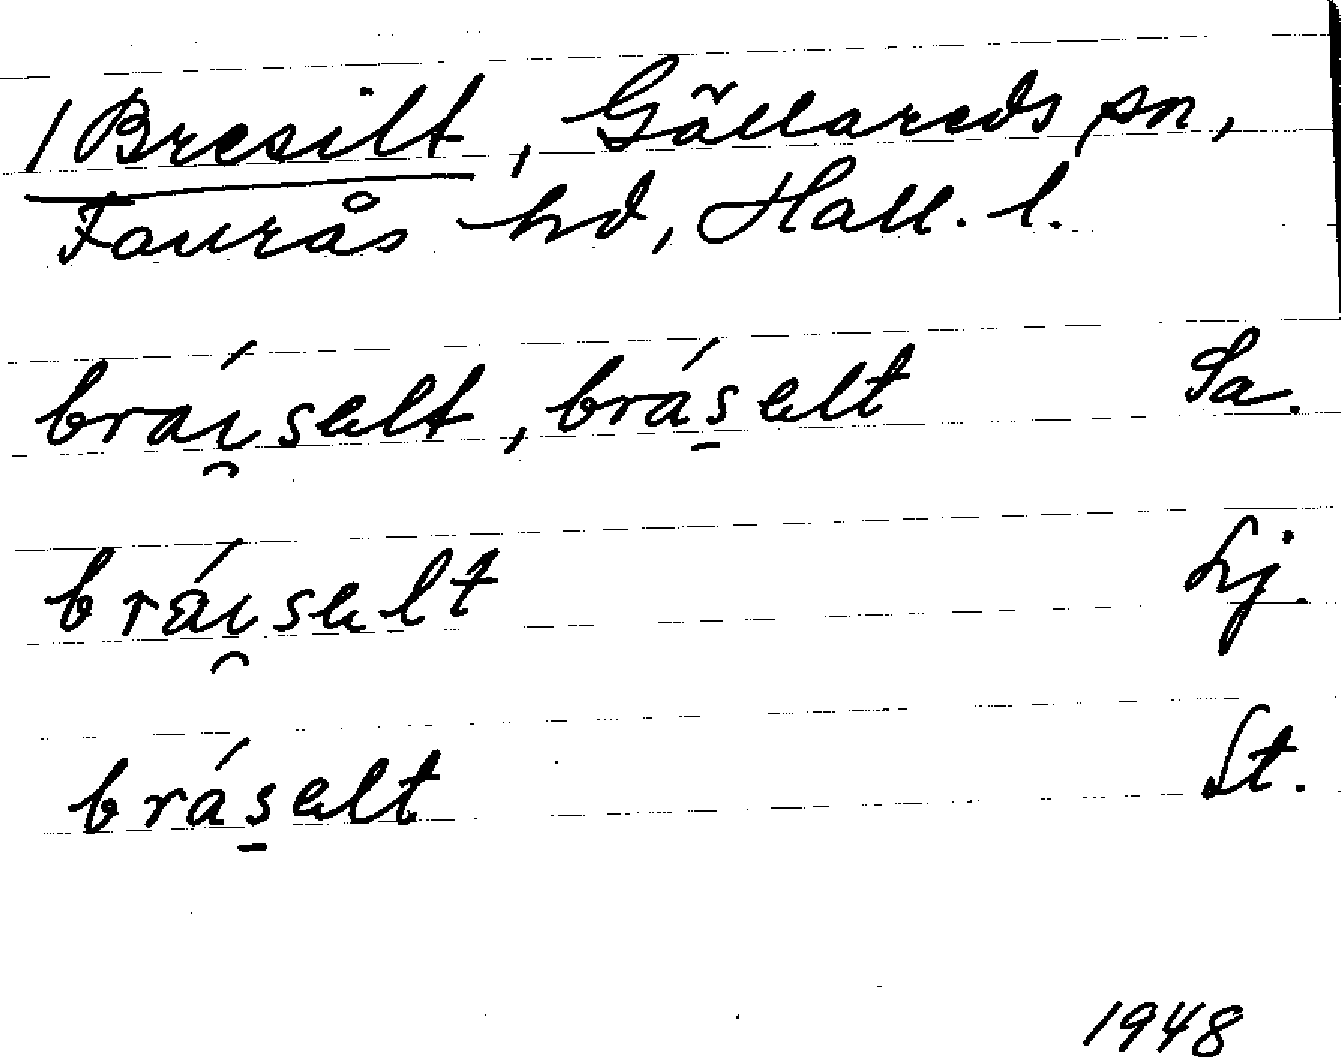 /Bresilt, Gällareds sn,
Faurås hd, Hall. l.
brái̯selt, brás̠elt Sa.
brái̯selt Lj.
brás̠elt St.
1948